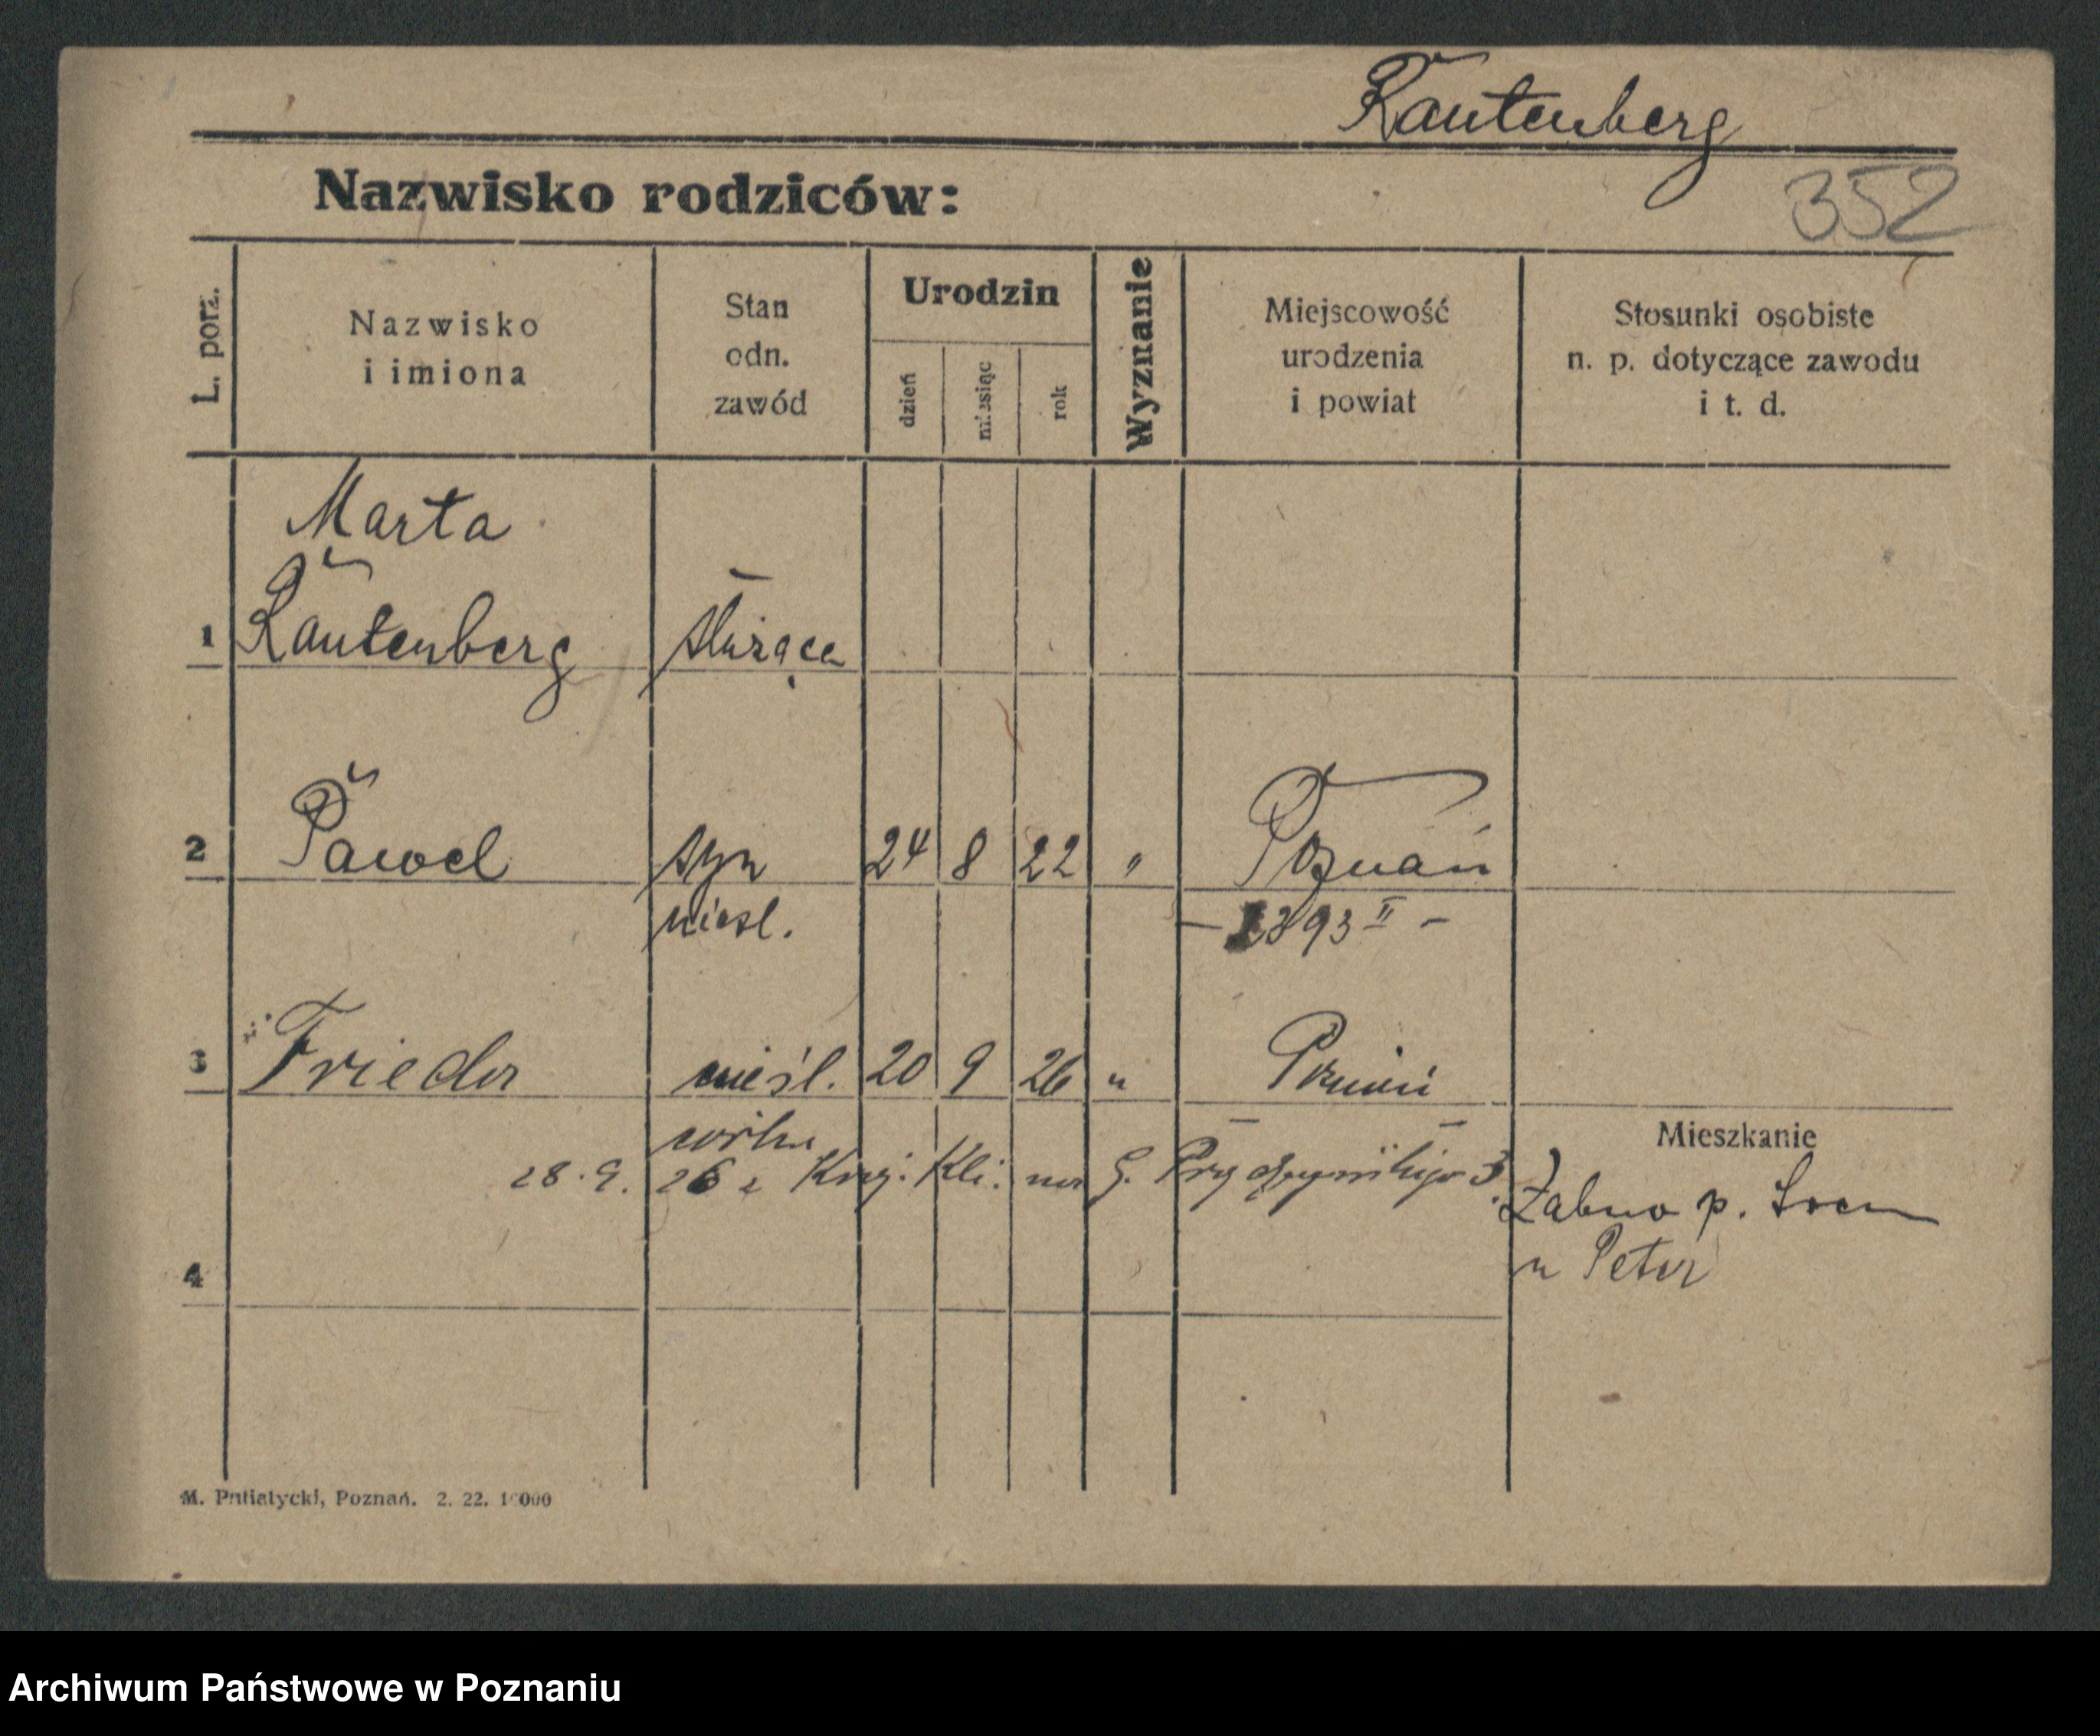 Rautenberg
Nazwisko rodziców:
352
L. porz.
Nazwisko
i imiona
Stan
odn.
zawód
Urodzin
dzień
miesiąc
rok
Wyznanie
Miejscowość
urodzenia
i powiat
Stosunki osobiste
n. p. dotyczące zawodu
i t. d.
Marta
1 Rautenberg służąca
2 Paweł syn 24 8 22 " Poznań
nieśl. 2893 II -
3 Frieda nieśl. 20 9 26 " Poznań
córka
Mieszkanie
28. 9. 26 z Kraj. Kli. na G. 3.
Żabno p.
u Peter
4
M. Putiatycki, Poznań. 2. 22. 10000
Archiwum Państwowe w Poznaniu